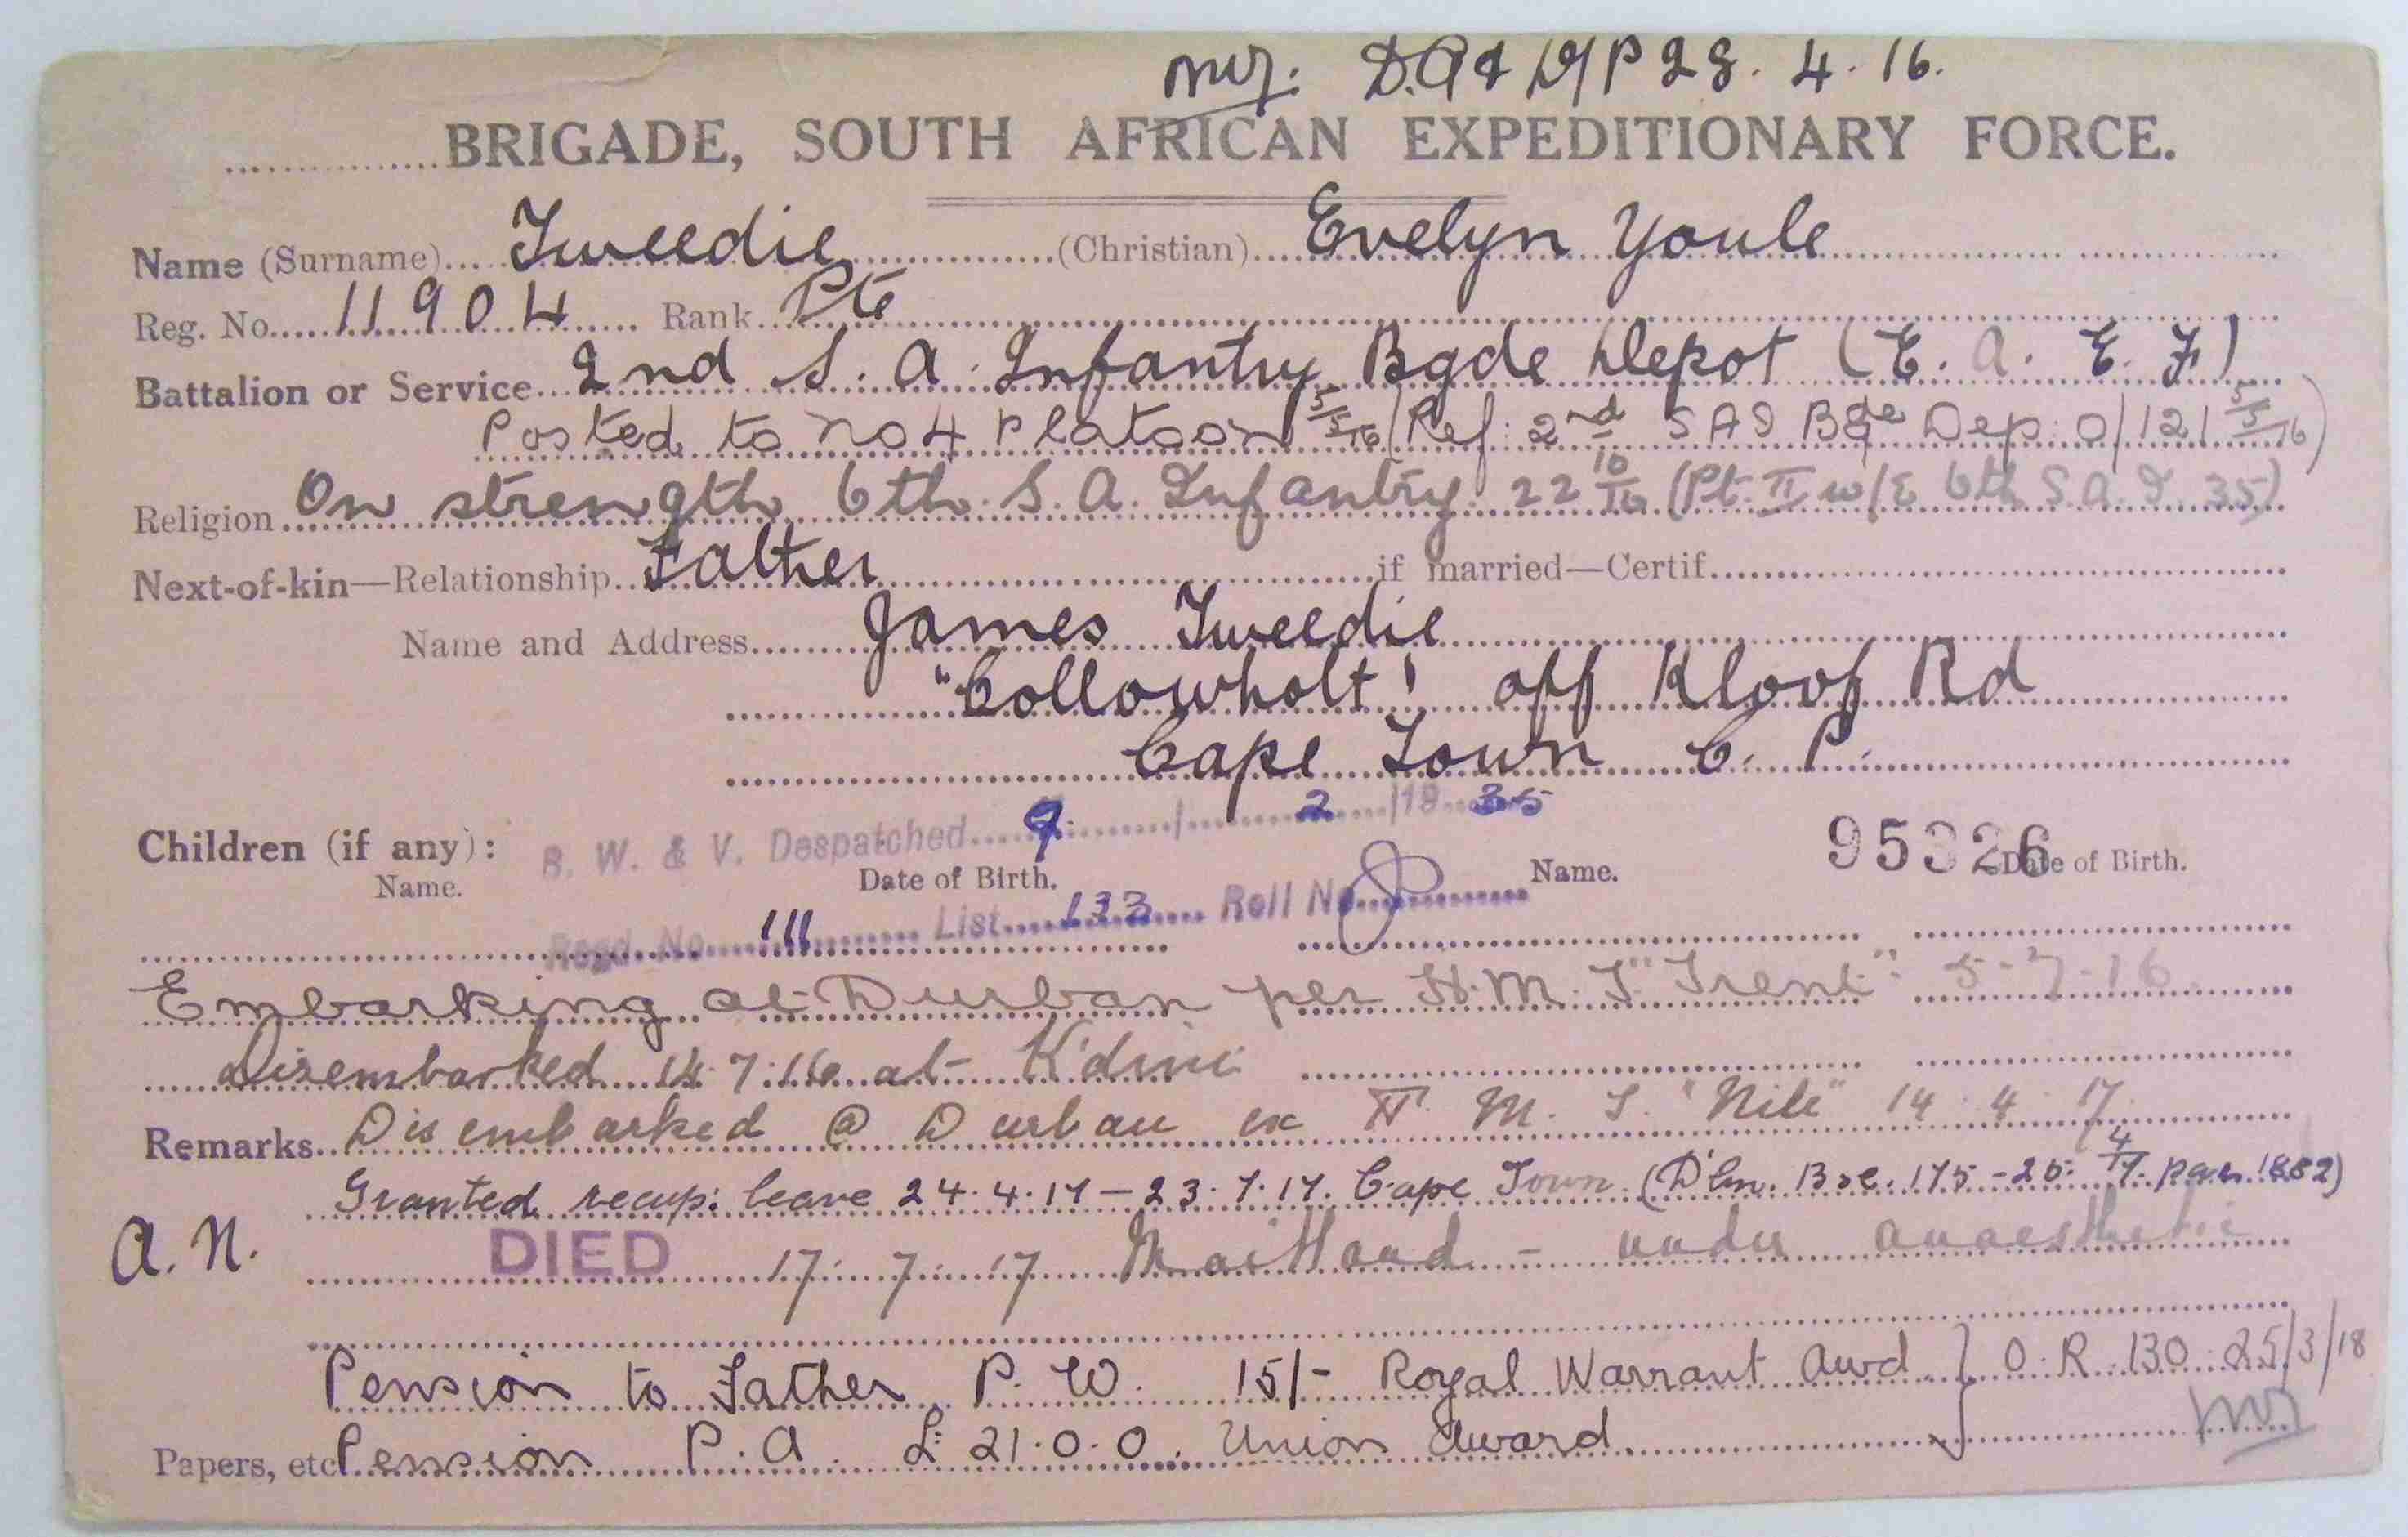 D.A & D/P 28. 4. 16.
BRIGADE, SOUTH AFRICAN EXPEDITIONARY FORCE.
Name (Surname) Tweedie (Christian) Evelyn Youle
Reg. No. 11904 Rank Pte
Battalion or Service 2nd S. A. Infantry Bgde Depot (E. A. E. F)
Posted to no 4 Platoon 5/5/16 (Ref: 2nd S A I Bde Dep: O/121 5/5/16)
Religion On strength 6th S. A. Infantry 22 10/16 (Pt. II 6th S.A.I. 35)
Next-of-kin—Relationship Father if married—Certif.
Name and Address James Tweedie
"Collowholt" off Kloof Rd
Cape Town C. P.
B. W. & V. Despatched 9 / 2 /19 35
Children (if any): 95326
Name. Date of Birth. Name. Date of Birth.
Regd. No. 111 List 133 Roll No.
Embarking at Durban per H.M.T "Trent" 5-7-16
Disembarked 14.7.16 at K'dini
Remarks Disembarked @ Durban ex H. M. T. "Nile" 14. 4. 17
Granted recup: leave 24.4.17 – 23.7.17. Cape Town (D'bn. Bse. 175 - 25. 4/17. par. 1882)
A. N. DIED 17. 7. 17 Maitland - under anaesthetic
Pension to Father P. W. 15/- Royal Warrant Awd } O. R. 130 25/3/18
Papers, etc. Pension P. A. £ 21.0.0. Union Award